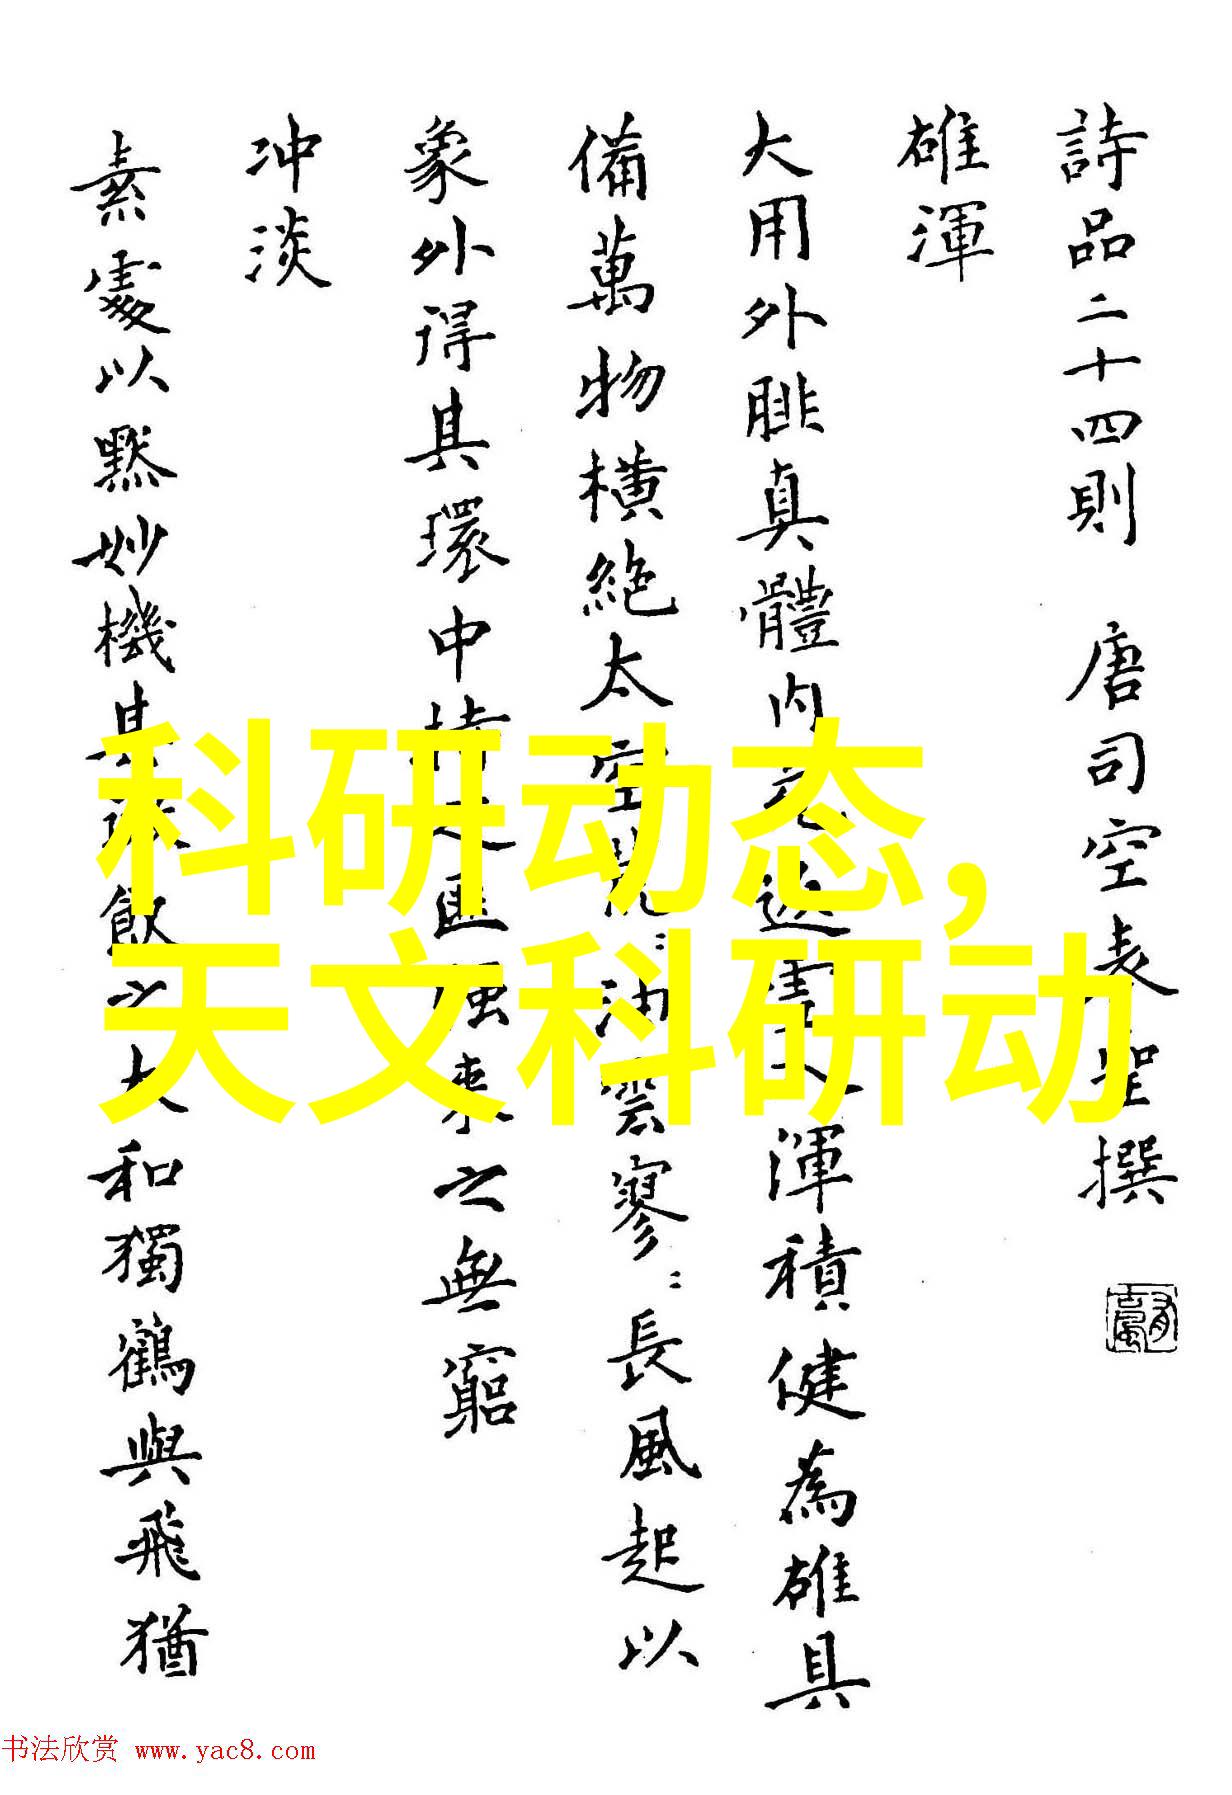 詩品二十四則 唐司空表聖撰
雄渾
大用外腓真體内充返虛入渾積健為雄具
備萬物橫絶太空荒〻油雲寥〻長風起以
象外得其環中持之匪强来之無窮
冲淡
素處以黙妙機其微飲之太和獨鶴與飛猶
科研动态,
天文科研动
书法欣赏 www.yac8.com